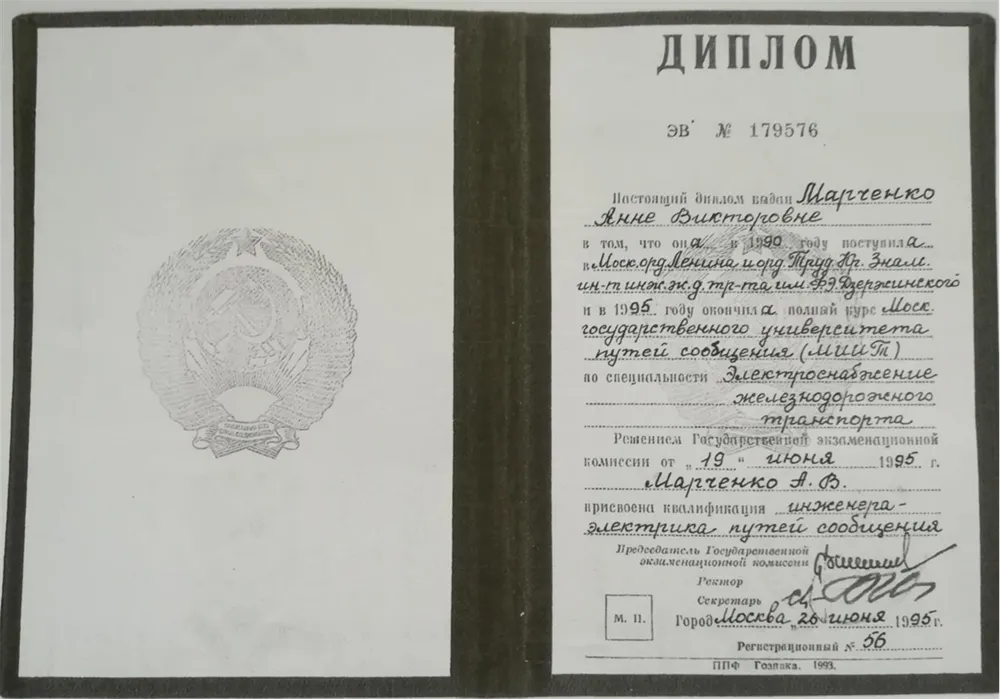 ДИПЛОМ
ЭВ № 179576
Настоящий диплом выдан Марченко
Анне Викторовне
в том, что она в 1990 году поступила
в Моск. орд. Ленина и орд. Труд. Кр. Знам.
ин-т инж. ж.д. тр-та им. Ф.Э. Дзержинского
и в 1995 году окончила полный курс Моск.
государственного университета
путей сообщения (МИИТ)
по специальности Электроснабжение
железнодорожного
транспорта
Решением Государственной экзаменационной
комиссии от „19“ июня 1995 г.
Марченко А. В.
присвоена квалификация инженера-
электрика путей сообщения
Председатель Государственной
экзаменационной комиссии
Ректор
Секретарь
М. П.
Город Москва „26 июня 1995 г.
Регистрационный № 56
ППФ Гознака. 1993.